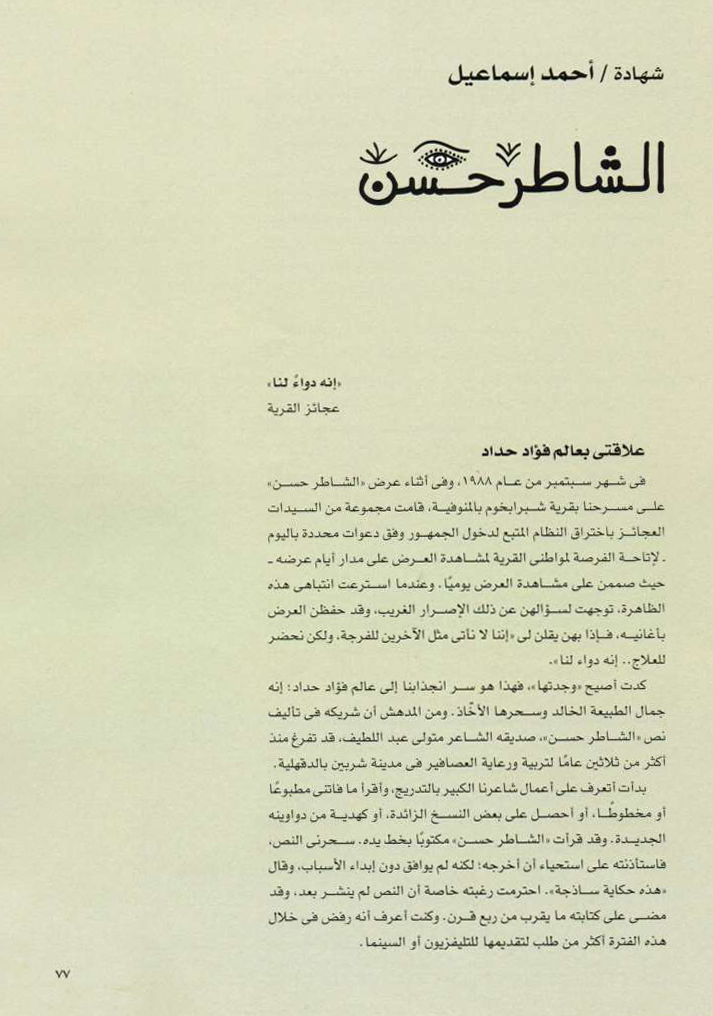 شهادة / أحمد إسماعيل
الشاطر حسن
«إنه دواءٌ لنا»
عجائز القرية
علاقتى بعالم فؤاد حداد
فى شهر سبتمبر من عام ١٩٨٨، وفى أثناء عرض «الشاطر حسن»
على مسرحنا بقرية شبرابخوم بالمنوفية، قامت مجموعة من السيدات
العجائز باختراق النظام المتبع لدخول الجمهور وفق دعوات محددة باليوم
ـ لإتاحة الفرصة لمواطنى القرية لمشاهدة العرض على مدار أيام عرضه ـ
حيث صممن على مشاهدة العرض يوميًا. وعندما استرعت انتباهى هذه
الظاهرة، توجهت لسؤالهن عن ذلك الإصرار الغريب، وقد حفظن العرض
بأغانيه، فإذا بهن يقلن لى «إننا لا نأتى مثل الآخرين للفرجة، ولكن نحضر
للعلاج.. إنه دواء لنا».
كدت أصيح «وجدتها»، فهذا هو سر انجذابنا إلى عالم فؤاد حداد: إنه
جمال الطبيعة الخالد وسحرها الأخّاذ. ومن المدهش أن شريكه فى تأليف
نص «الشاطر حسن»، صديقه الشاعر متولى عبد اللطيف، قد تفرغ منذ
أكثر من ثلاثين عامًا لتربية ورعاية العصافير فى مدينة شربين بالدقهلية.
بدأت أتعرف على أعمال شاعرنا الكبير بالتدريج، وأقرأ ما فاتنى مطبوعًا
أو مخطوطًا، أو أحصل على بعض النسخ الزائدة، أو كهدية من دواوينه
الجديدة. وقد قرأت «الشاطر حسن» مكتوبًا بخط يده. سحرنى النص،
فاستأذنته على استحياء أن أخرجه؛ لكنه لم يوافق دون إبداء الأسباب، وقال
«هذه حكاية ساذجة». احترمت رغبته خاصة أن النص لم ينشر بعد، وقد
مضى على كتابته ما يقرب من ربع قرن. وكنت أعرف أنه رفض فى خلال
هذه الفترة أكثر من طلب لتقديمها للتليفزيون أو السينما.
٧٧